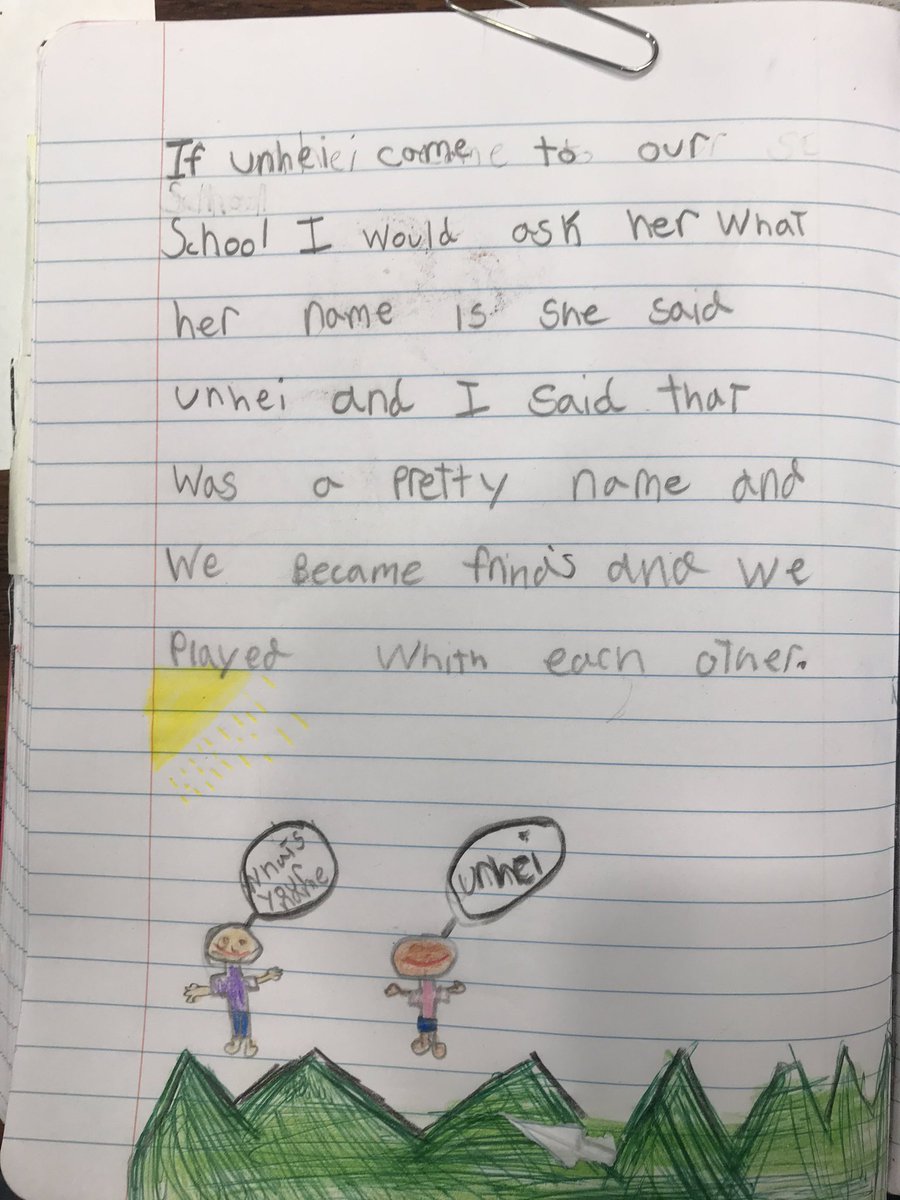 If unhei come to our
School I would ask her What
her name is she said
unhei and I said that
Was a pretty name and
We Became frinds and we
Played Whith each other.
whats
your
name
unhei